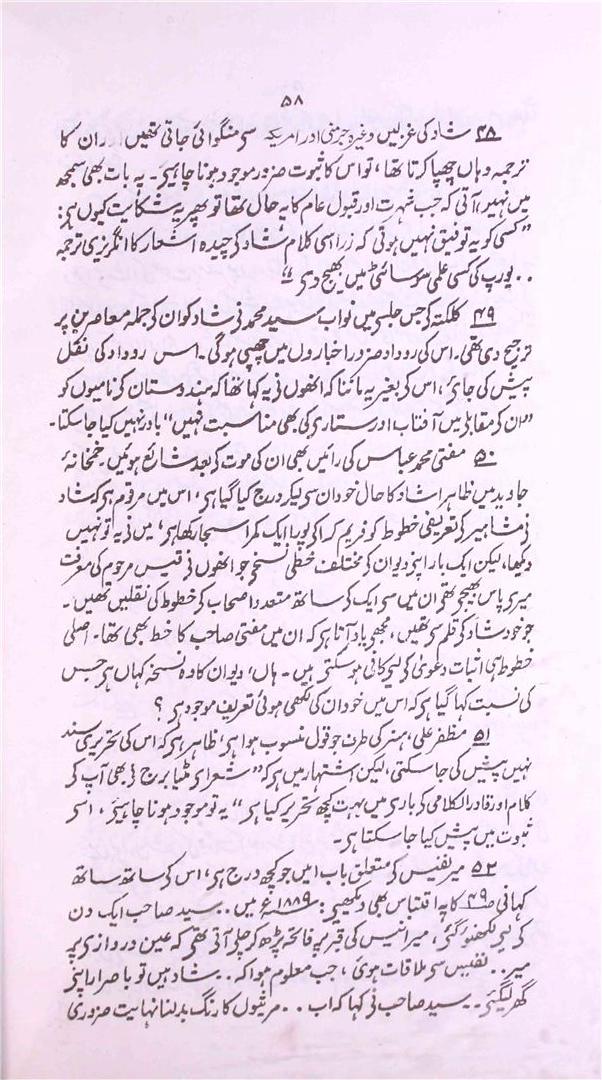 ۵۸
۴۸ شاد کی غزلیں وغیرہ جرمنی اور امریکہ سے منگوائی جاتی تھیں اور ان کا
ترجمہ وہاں چھپا کرتا تھا، تو اس کا ثبوت ضرور موجود ہونا چاہیے۔ یہ بات بھی سمجھ
میں نہیں آتی کہ جب شہرت اور قبول عام کا یہ حال تھا تو پھر یہ شکایت کیوں ہے:
"کسی کو یہ توفیق نہیں ہوتی کہ ذرا سے کلام شاد کے چیدہ اشعار کا انگریزی ترجمہ
۰۰ یورپ کی کسی علمی سوسائٹی میں بھیج دے"
۴۹ کلکتے کے جس جلسے میں نواب سید محمد نے شاد کو ان کے جملہ معاصرین پر
ترجیح دی تھی۔ اس کی روداد ضرور اخباروں میں چھپی ہوگی۔ اس روداد کی نقل
پیش کی جائے، اس کے بغیر یہ ماننا کہ انھوں نے یہ کہا تھا کہ ہندوستان کے نامیوں کو
"ان کے مقابلے میں آفتاب اور ستارے کی بھی مناسبت نہیں" باور نہیں کیا جا سکتا۔
۵۰ مفتی محمد عباس کی رائیں بھی ان کی موت کے بعد شائع ہوئیں۔ خمخانۂ
جاوید میں ظاہرا شاد کا حال خود ان سے لیکر درج کیا گیا ہے، اس میں مرقوم ہے کہ شاد
نے مشاہیر کے تعریفی خطوط کو فریم کرا کے پورا ایک کمرا سجا رکھا ہے، میں نے یہ تو نہیں
دیکھا، لیکن ایک بار اپنے دیوان کے مختلف خطی نسخے جو انھوں نے قیس مرحوم کی معرفت
میرے پاس بھیجے تھے ان میں سے ایک کے ساتھ متعدد اصحاب کے خطوط کی نقلیں تھیں۔
جو خود شاد کے قلم سے تھیں، مجھے یاد آتا ہے کہ ان میں مفتی صاحب کا خط بھی تھا۔ اصلی
خطوط ہی اثبات دعویٰ کے لیے کافی ہو سکتے ہیں۔ ہاں، دیوان کا وہ نسخہ کہاں ہے جس
کی نسبت کہا گیا ہے کہ اس میں خود ان کی لکھی ہوئی تعریف موجود ہے؟
۵۱ مظفر علی، ہنر کی طرف جو قول منسوب ہوا ہے، ظاہر ہے کہ اس کی تحریری سند
نہیں پیش کی جا سکتی، لیکن اشتہار میں ہے کہ "شعرائے مٹیا برج نے بھی آپ کے
کلام اور قادر الکلامی کے بارے میں بہت کچھ تحریر کیا ہے" یہ تو موجود ہونا چاہیے، اسے
ثبوت میں پیش کیا جا سکتا ہے۔
۵۲ میر نفیس کے متعلق باب ا میں جو کچھ درج ہے، اس کے ساتھ ساتھ
کہانی ص۴۹ کا یہ اقتباس بھی دیکھیے: ۱۸۸۹ء میں ۰۰ سید صاحب ایک دن
کے لیے لکھنؤ گئے، میر انیس کی قبر پر فاتحہ پڑھ کر چلے آتے تھے کہ عین دروازے پر
میر ۰۰ نفیس سے ملاقات ہوئی، جب معلوم ہوا کہ ۰۰ شاد ہیں تو باصرار اپنے
گھر لیگئے ۰۰ سید صاحب نے کہا کہ اب ۰۰ مرثیوں کا رنگ بدلنا نہایت ضروری